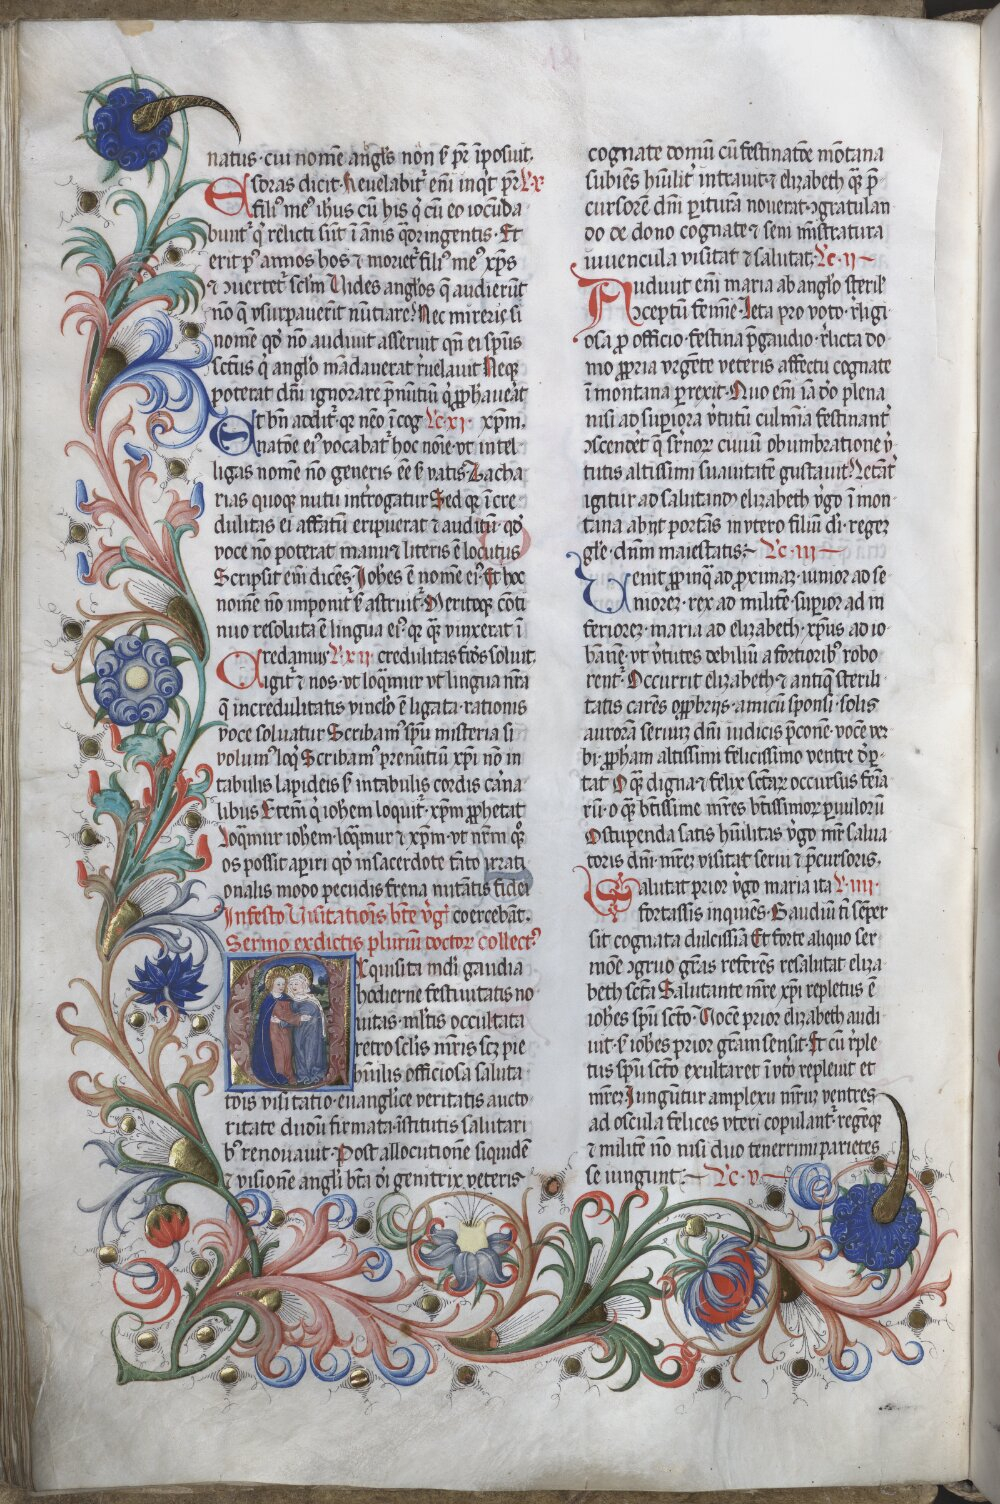 natus · cui nomē angl's non s̄ pr̄ īposuit.
Esdras dicit · Reuelabit' eni inq̇t pr̄ Lx
afili' me' ihus cū his q̇ cū eo iocūda
bunt' q̇ relicti sūt ī ānis q̄dringentis · Et
erit p' annos hos ⁊ moriet' fili' me' xp̄s
⁊ ↄuertet' sclm̄ Uides anglos q̄ audierūt
nō q̄ vsurpauerit nūtiare? Nec mireris si
nomē qd' nō audiuit asseruit qn̄ ei sp̄us
sctūs q̇ anglo mādauerat r̄uelauit Neq̄
poterat dn̄i ignorare p̄nūtiū q̇ p̄phauēat
Et bn̄ addit'· q̄ neō ī cog Lc · xi · xp̄m.
natōe ei' vocabat' hoc noīe · vt intel·
ligas nomē nō generis ēē s̄ vatis · Zacha
rias quoq̄ nutu int'rogatur Sed q̄ īcre
dulitas ei affatū eripuerat ⁊ auditū · qd'
voce nō poterat manu ⁊ literis ē locutus
Scripsit eni dicēs Iohes ē nomē ei'· Et hoc
nomē nō imponit' s̄ astruit'· Meritoq̄ cōti
nuo resoluta ē lingua ei'· q̄ q̄ vinxerat ī
Credamus L · xii · credulitas fidēs soluit.
igit' ⁊ nos · vt loq̄mur vt lingua nr̄a
q̄ incredulitatis vinclo ē ligata · rationis
voce soluatur Scribam' sp̄u misteria si
volum' loq̇ Scribam' p̄renūtiū xp̄i nō in
tabulis lapideis s̄ in tabulis cordis carna
libus Etem̄ q̇ iohem loquit'· xp̄m p̄phetat
loq̄mur iohem · loq̄mur ⁊ xp̄m · vt nr̄m q̄
os possit apiri qd' in sacerdote tāto irrati
onalis modo pecudis frena nutātis fidei
Infesto Uisitatiōis bt̄e v̇gi coercebāt.
Sermo ex dictis pluriū doctor collect'
Exquisita mdi gaudia
hodierne festiuitatis no
uitas · ml'tis occultata
retro sclis mr̄is scz pie
hūilis officiosa saluta
toris visitatio · euanglice veritatis aucto
ritate duoū firmata · īstitutis salutari
b' renouauit · Post allocutionē siquidē
⁊ visionē angli bt̄a di genitrix veteris
cognate domū cū festinatōe mōtana
subiēs hūilit' intrauit · ⁊ elizabeth q̄ p̄
cursorē dn̄i pariturā nouerat · ↄgratulan
do de dono cognate ⁊ seni ministratura
iuuencula visitat ⁊ salutat · Lc · ii
Auduit eni maria ab anglo steril'
ↄceptū femīe · leta pro voto · r̄ligi
osa p officio · festina p̄ gaudio · r̄licta do
mo ppria vrgēte veteris affectu cognate
ī montana perexit · Quo eni ia do plena
nisi ad supiora v̇tutū culmīa festinant'
ↄscenderet q̄ sr̄nor ciuiū obumbratione v̇
tutis altissimi suauitatē gustauit? Recāt'
igitur ad salutand' elizabeth v̇go ī mon
tana abijt portās in vtero filiū di · regē
gl'e · dn̄m maiestatis · Lc · iii
Uenit ppinq̄ ad proximā · iunior ad se
niorē · rex ad militē · supior ad in
feriorē · maria ad elizabeth · xp̄us ad io
hanē · vt v̇tutes debiliū a fortiorib' robo
rent'· Occurrit elizabeth · ⁊ antiq̄ sterili
tatis carēs opprobriis · amicū sponsi · solis
aurorā seruū · dn̄i iudicis p̄conē · vocē ver
bi · pp̄ham altissimi felicissimo ventre op̄
tat O q̄ digna ⁊ felix sctarz occursus femīa
rū · o q̄ bt̄issime mr̄es bt̄issimor puulorū
Ostupenda satis hūilitas v̇go mr̄ salua
toris dn̄i mrez visitat serui ⁊ p̄cursoris.
Salutat prior v̇go maria ita L · iiii ·
fortassis inquiēs · Gaudiū ti sēper
sit cognata dulcissīa Et forte aliquo ser
mōe ↄgruo grās referēs resalutat eliza
beth scta Salutante mr̄e xp̄i repletus ē
iohes sp̄u scto · Uocē prior elizabeth audi
uit · s̄ iohes prior grām sensit · Et cū r̄ple
tus sp̄u scto exultaret ī vto repleuit et
mrez Iungūtur amplexu mr̄uz ventres
ad oscula felices vteri copulant' regēq̄
⁊ militē nō nisi duo tenerrimi parietes
seiungunt · Lc · v ·